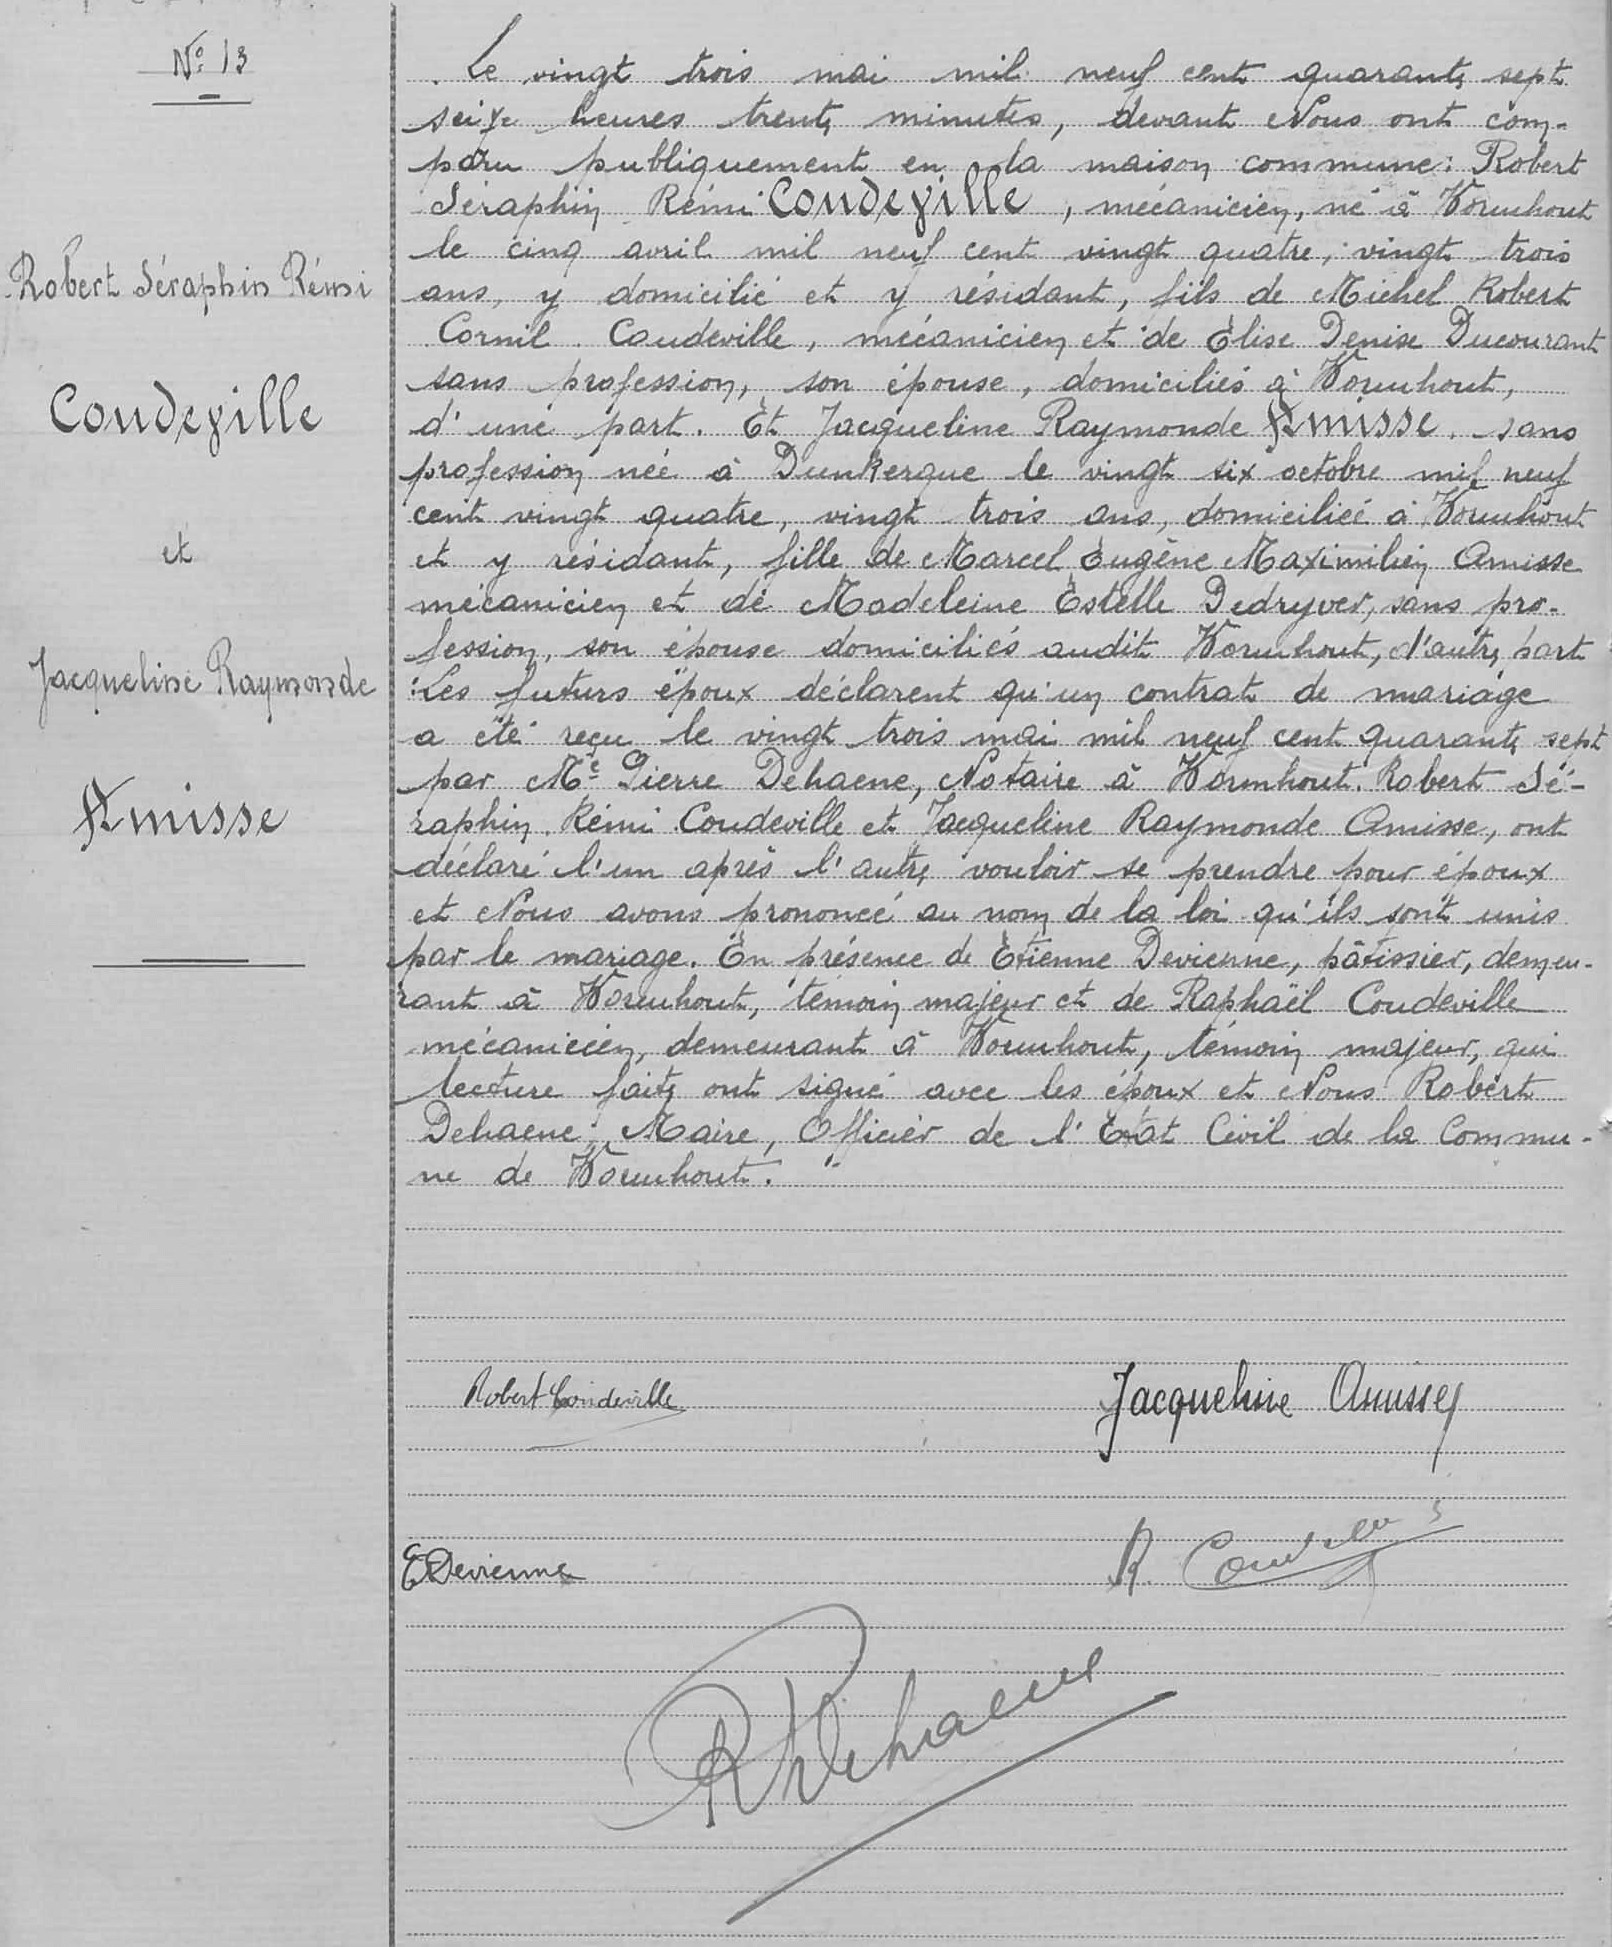 N° 13
Robert Séraphin Rémi
Coudeville
et
Jacqueline Raymonde
Amisse
Le vingt trois mai mil neuf cent quarante sept
seize heures trente minutes, devant Nous ont com-
paru publiquement en la maison commune: Robert
Séraphin Rémi Coudeville, mécanicien, né à Wormhout
le cinq avril mil neuf cent vingt quatre, vingt trois
ans, y domicilié et y résidant, fils de Michel Robert
Cornil Coudeville, mécanicien et de Élise Denise Ducourant
sans profession, son épouse, domiciliés à Wormhout,
d'une part. Et Jacqueline Raymonde Amisse, sans
profession née à Dunkerque le vingt six octobre mil neuf
cent vingt quatre, vingt trois ans, domiciliée à Wormhout
et y résidant, fille de Marcel Eugène Maximilien Amisse
mécanicien et de Madeleine Estelle Dedryver, sans pro-
fession, son épouse domiciliés audit Wormhout, d'autre part
Les futurs époux déclarent qu'un contrat de mariage
a été reçu le vingt trois mai mil neuf cent quarante sept
par Me Pierre Dehaene, Notaire à Wormhout. Robert Sé-
raphin Rémi Coudeville et Jacqueline Raymonde Amisse, ont
déclaré l'un après l'autre vouloir se prendre pour époux
et Nous avons prononcé au nom de la loi qu'ils sont unis
par le mariage. En présence de Etienne Devienne, pâtissier, demeu-
rant à Wormhout, témoin majeur et de Raphaël Coudeville
mécanicien, demeurant à Wormhout, témoin majeur, qui
lecture faite ont signé avec les époux et Nous Robert
Dehaene Maire, Officier de l'Etat Civil de la Commu-
ne de Wormhout.
Robert Coudeville
Jacqueline Amisse
E Devienne
R. Coudeville
R Dehaene